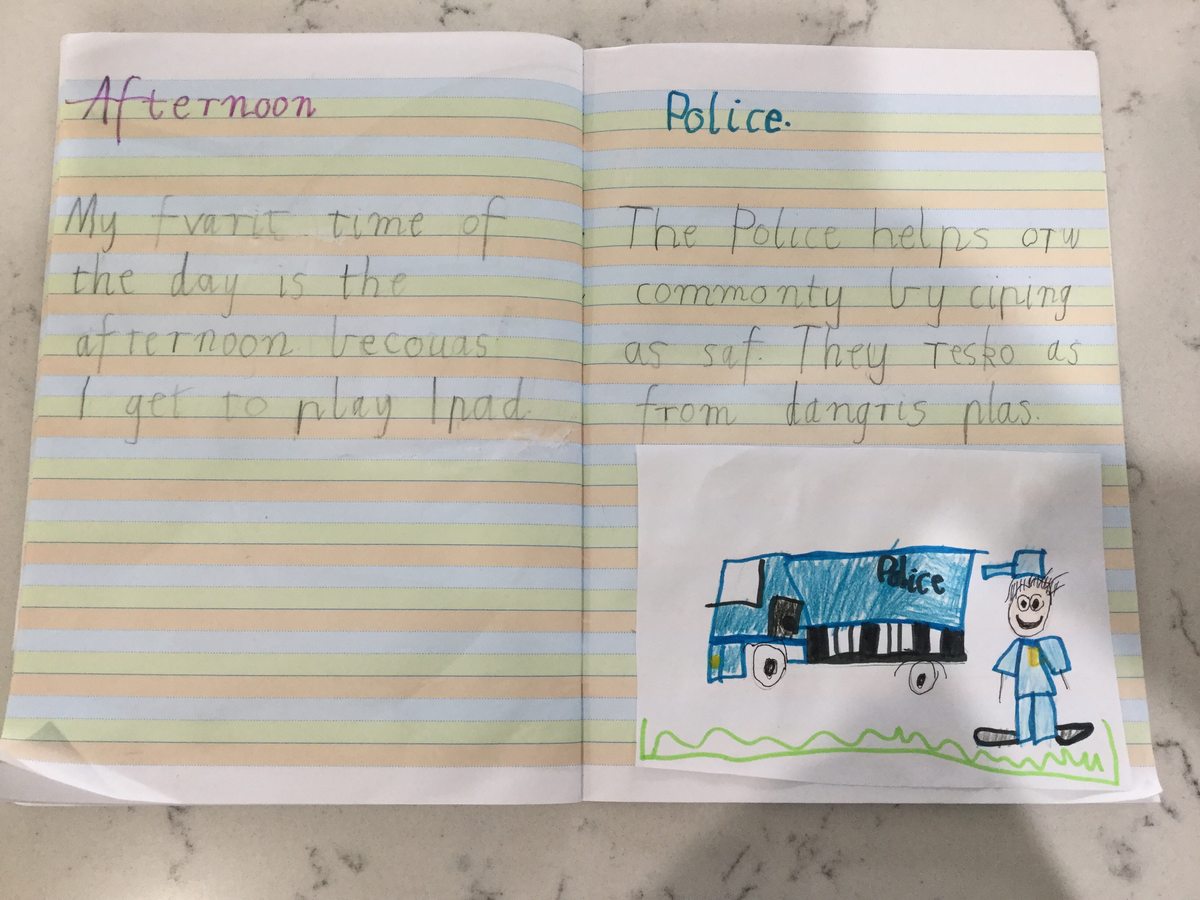 Afternoon
My fvarit time of
the day is the
afternoon becouas
I get to play Ipad.
Police.
The Police helps orw
commonty by ciping
as saf. They resko as
from dangris plas.
Police